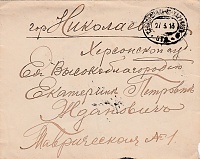 гор Николаевъ
Херсонской губ.
Ея Высокоблагородію
Екатеринѣ Петровнѣ
Ждановичъ
Таврическая № 1
27 5 16